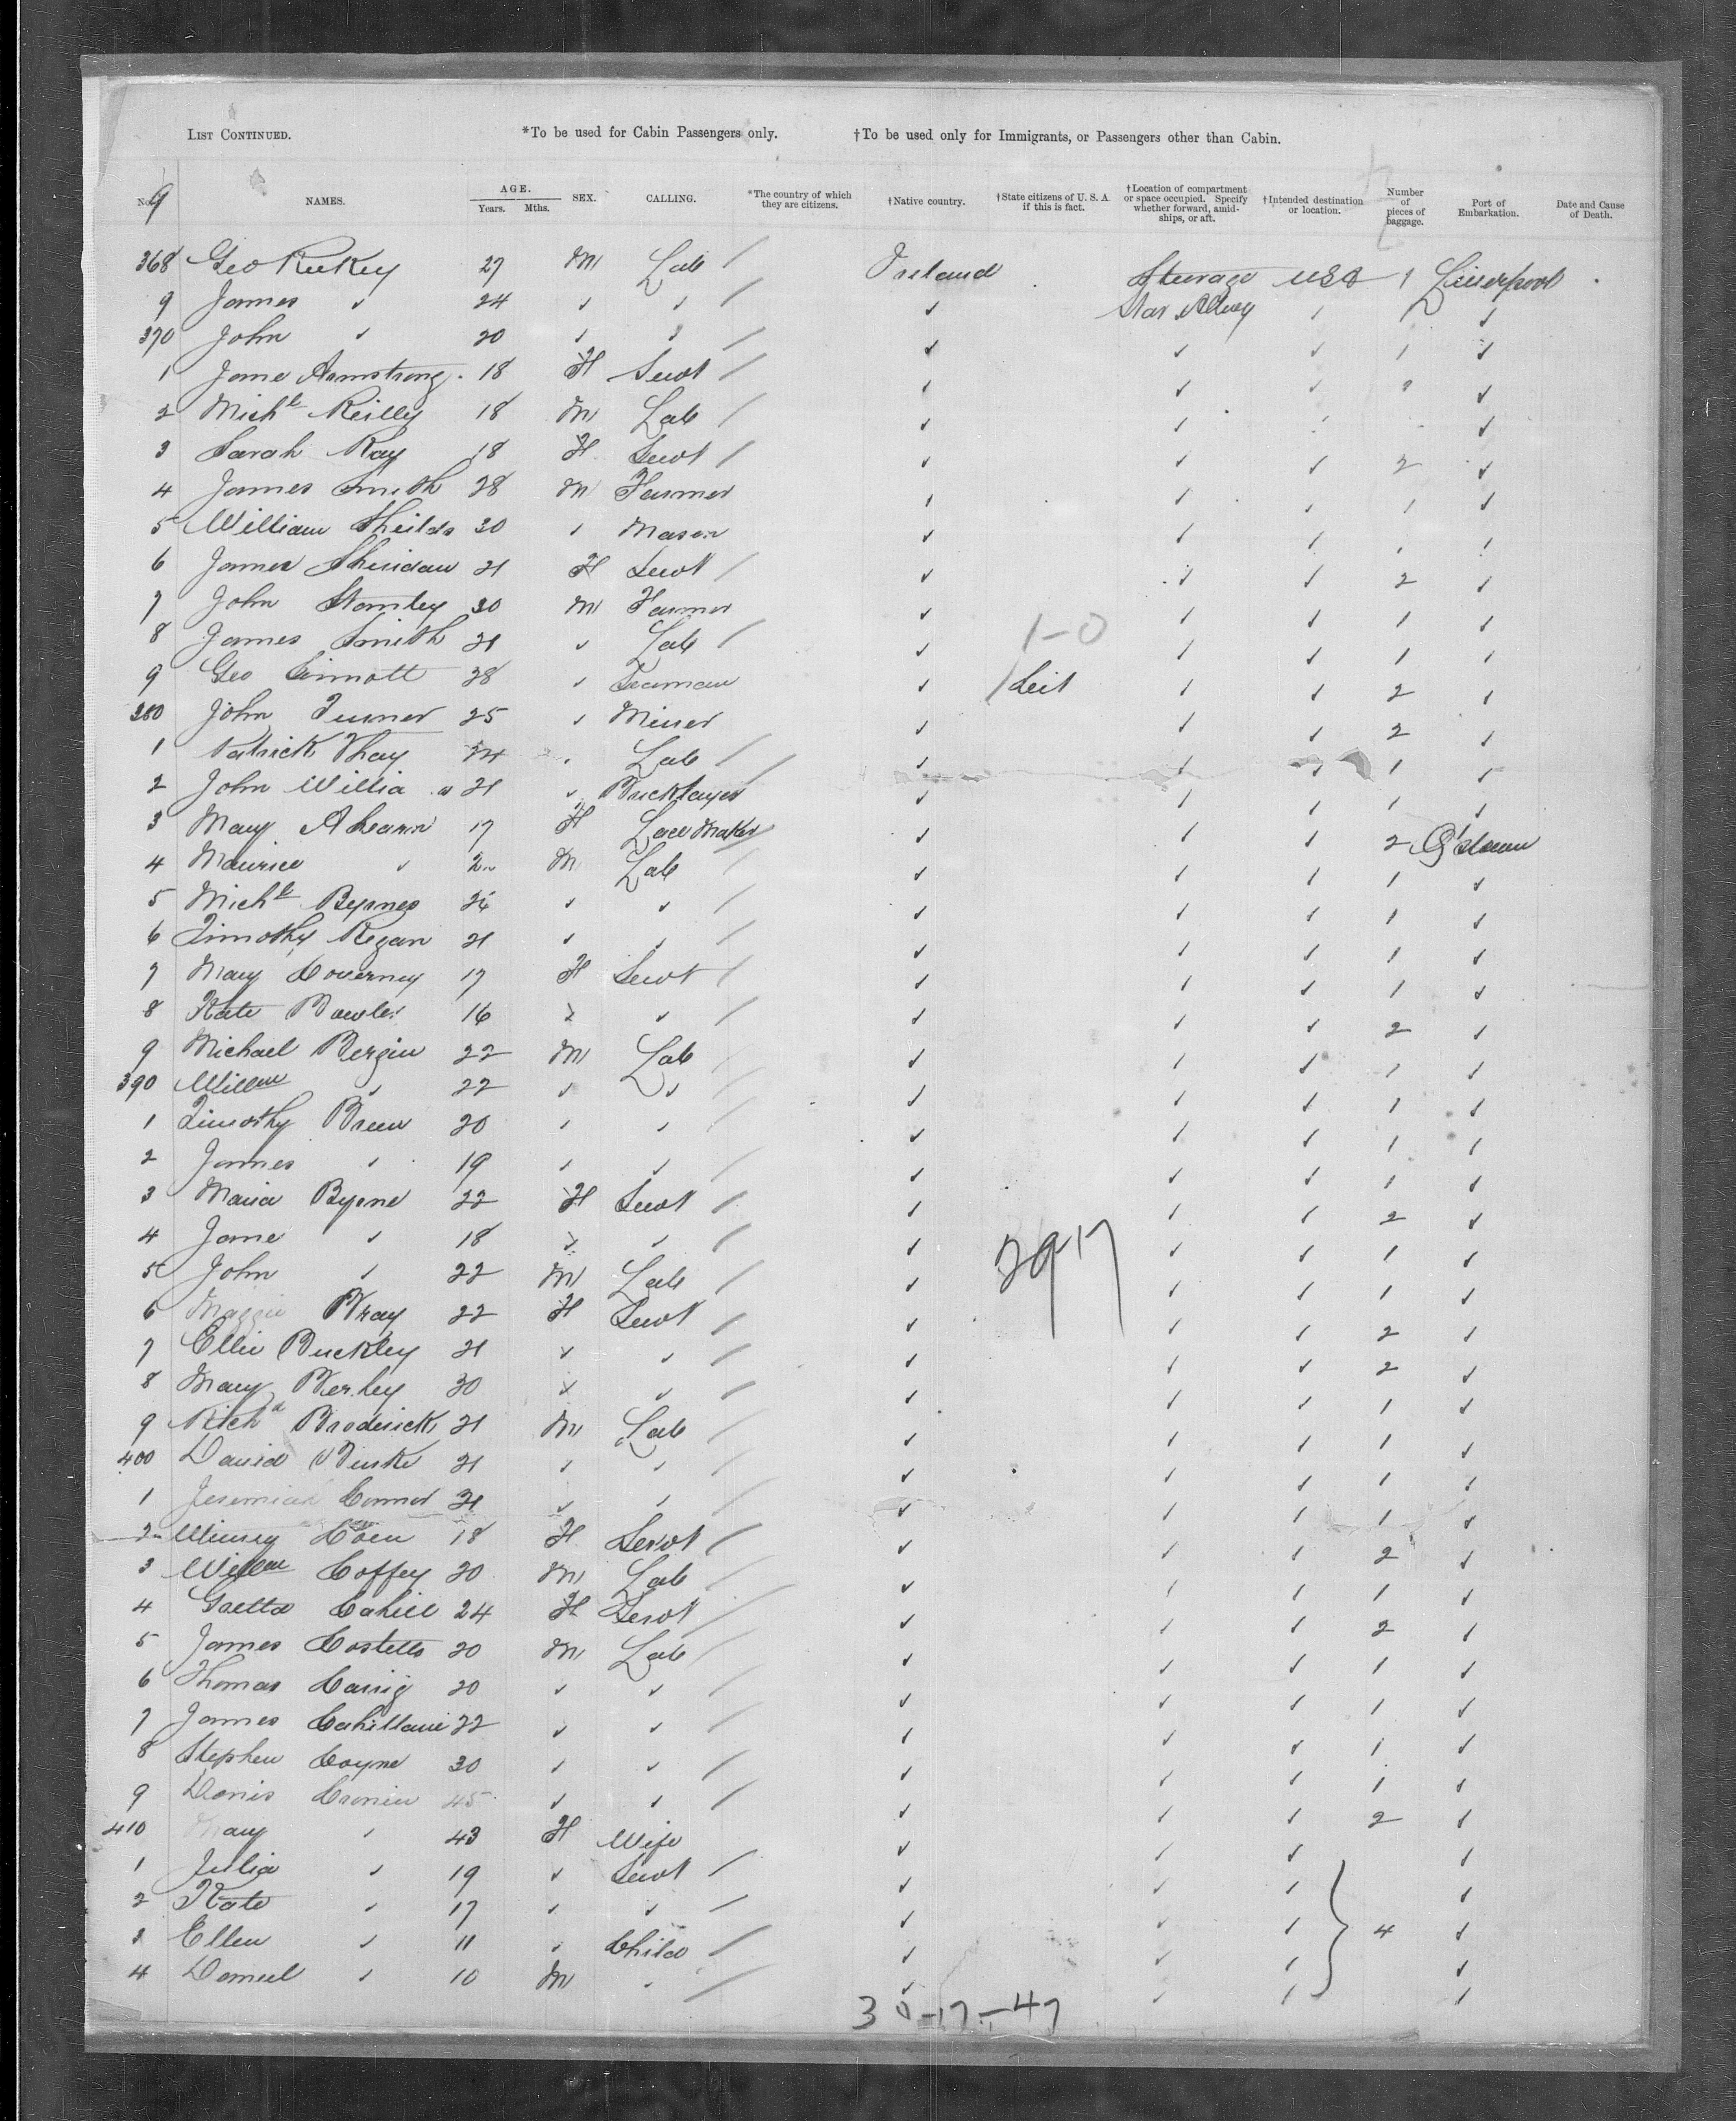 LIST CONTINUED. *To be used for Cabin Passengers only. †To be used only for Immigrants, or Passengers other than Cabin.
No. 9 NAMES. AGE. Years. Mths. SEX. CALLING. *The country of which they are citizens. †Native country. †State citizens of U. S. A if this is fact. †Location of compartment or space occupied. Specify whether forward, amidships, or aft. †Intended destination or location. Number of pieces of baggage. Port of Embarkation. Date and Cause of Death.
368 Geo 27 M Lab / Ireland Steerage USA 1 Liverpool
9 James " 24 " " / "
370 John " 20 " " / " " " 1 "
1 Jane Armstrong 18 F Servt / " " " "
2 Michl Reilly 18 M Lab / " " "
3 Sarah Ray 18 F Servt / " " " 2 "
4 James Smith 28 M Farmer " " " 1 "
5 William Sheilds 30 " Mason " " " "
6 James Sheridan 21 F Servt / " " " 2 "
7 John Stanley 30 M Farmer " " " 1 "
8 James Smith 21 " Lab / " 1-0 " " 1 "
9 Geo Sinnott 28 " Seaman " " " 2 "
380 John Turner 25 " Miner " " " 2 "
1 Patrick 24 " Lab / " " " 1 "
2 John 21 " Bricklayer " " " 1 "
3 Mary Ahearn 17 F Lace Maker / " " " 2 Q'stown
4 Maurice " M Lab / " " " 1 "
5 Michl Byrnes 26 " " / " " " 1 "
6 Timothy Regan 21 " " / " " " 1 "
7 Mary Coverney 17 F Servt / " " " 1 "
8 Kate 16 " " / " " " 2 "
9 Michael Bergin 22 M Lab / " " " 1 "
390 Willm " 22 " " / " " " 1 "
1 Timothy Breen 20 " " / " " " 1 "
2 James " 19 " " / " " " 1 "
3 Maria Byrne 22 F Servt / " " " 2 "
4 Jane " 18 " " / " " " 1 "
5 John " 22 M Lab / " 2917 " " 1 "
6 Maggie Bray 22 F Servt / " " " 2 "
7 Ellie Buckley 21 " " / " " " 2 "
8 Mary 30 " " / " " " 1 "
9 Richd Broderick 21 M Lab / " " " 1 "
400 David Burke 21 " " / " " " 1 "
1 Jeremiah Connor 21 " " / " " " 1 "
2 Coen 18 F Servt / " " " 2 "
3 Willm Coffey 20 M Lab / " " " 1 "
4 Cahill 24 F Servt / " " " 2 "
5 James Costello 20 M Lab / " " " 1 "
6 Thomas 20 " " / " " " 1 "
7 James Cahillane 22 " " / " " " 1 "
8 Stephen Coyne 30 " " / " " " 1 "
9 Denis Cronin 45 " " / " " " 2 "
410 Mary " 43 F Wife " " " "
1 Julia " 19 " Servt / " " " "
2 Kate " 17 " " / " " " 4 "
3 Ellen " 11 " Child / " " " "
4 Daniel " 10 M " / " " " "